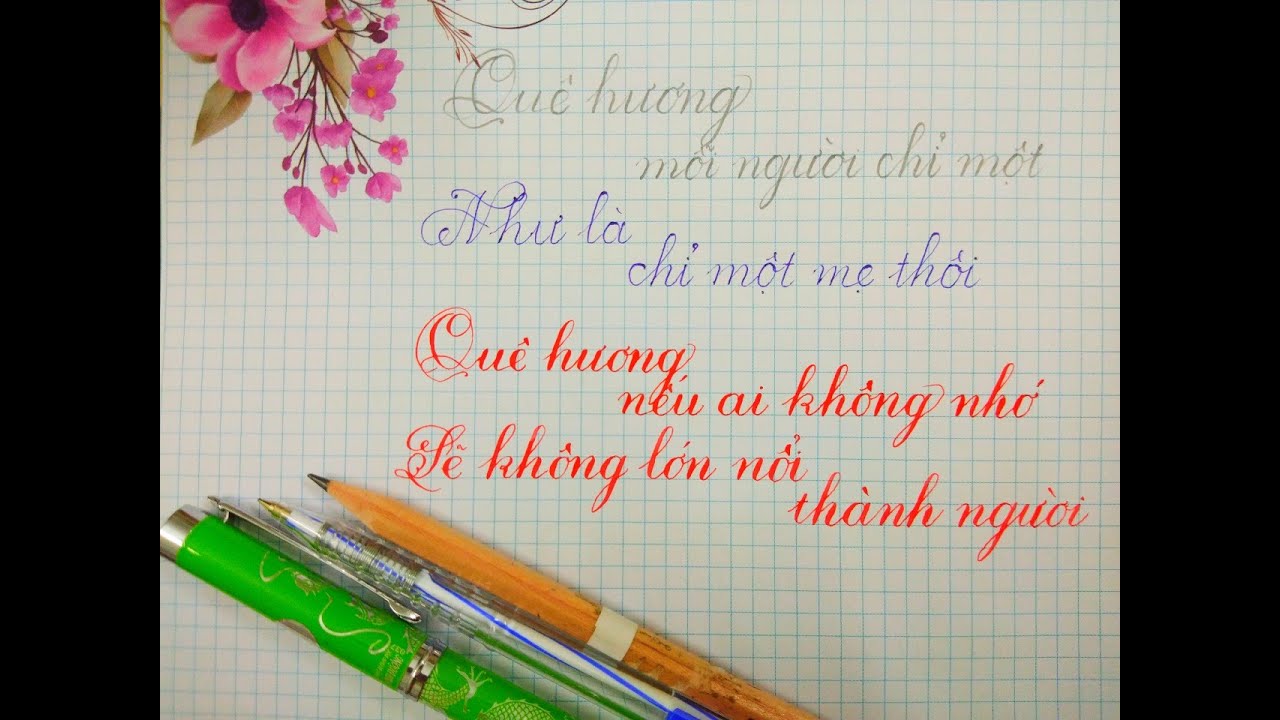 Quê hương
mỗi người chỉ một
Như là
chỉ một mẹ thôi
Quê hương
nếu ai không nhớ
Sẽ không lớn nổi
thành người